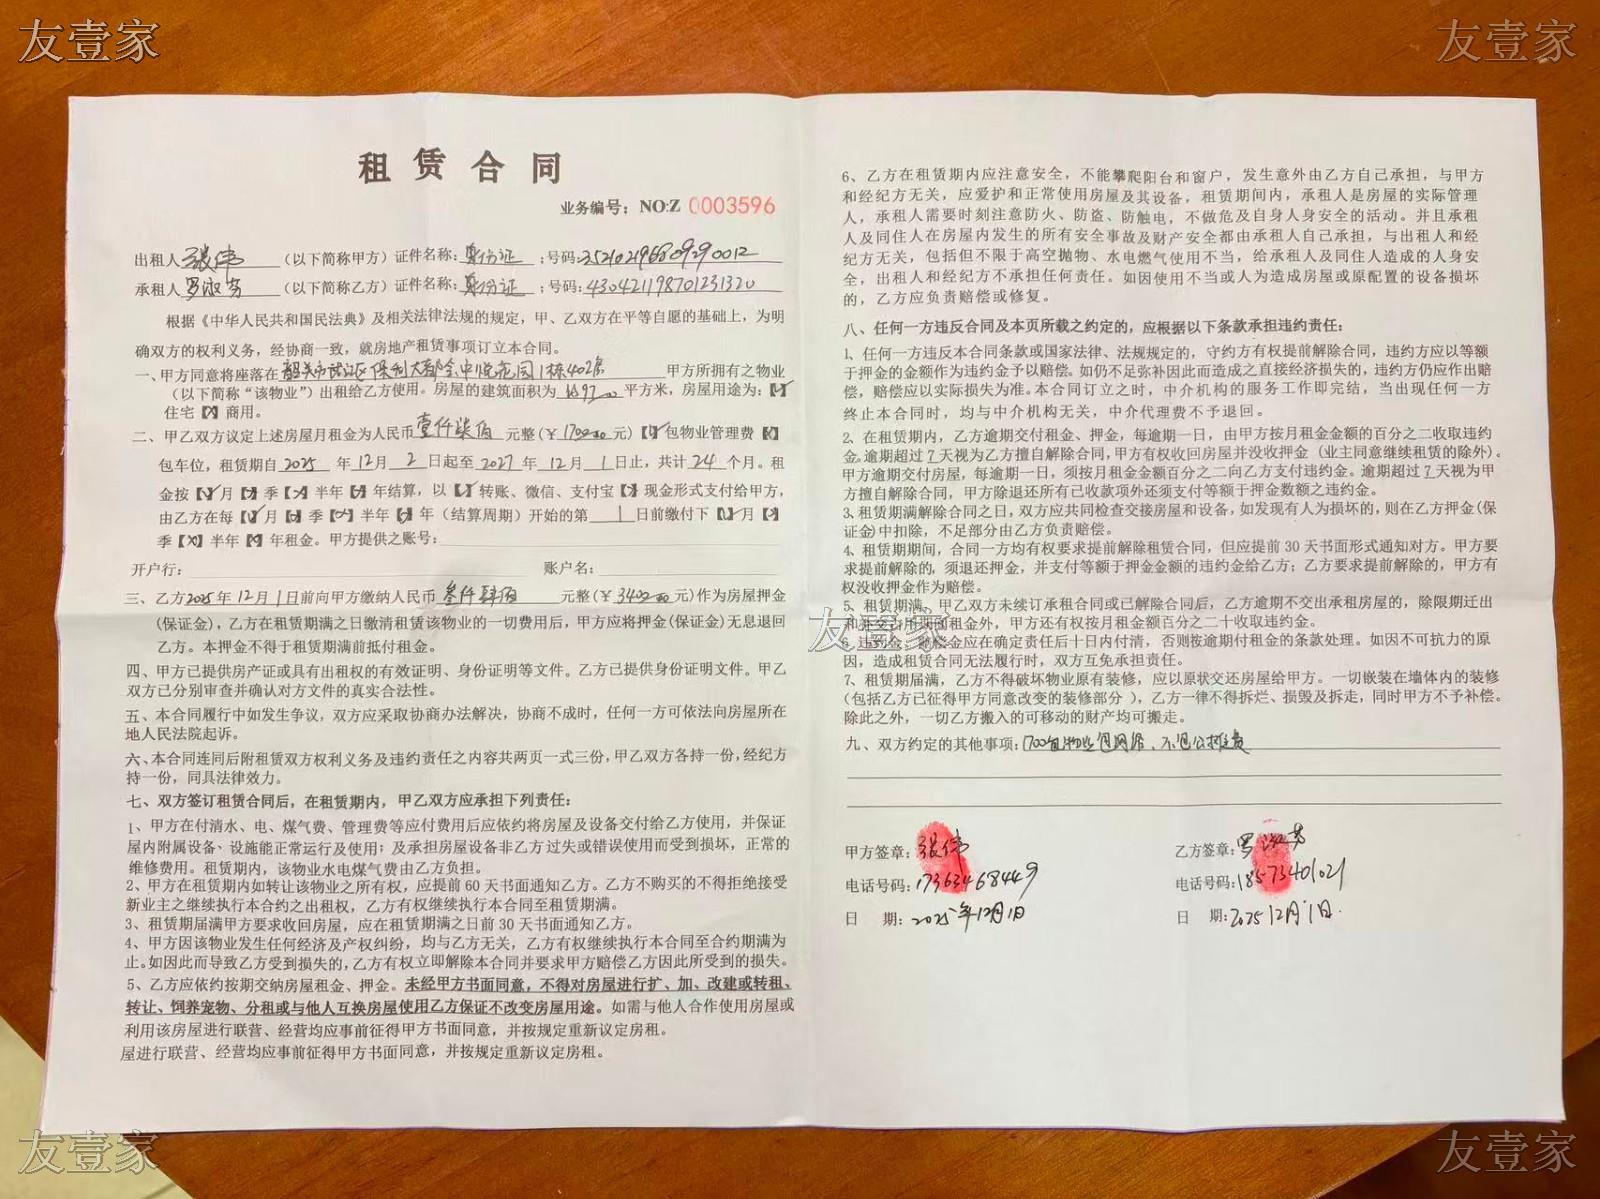 友壹家
友壹家
租赁合同
业务编号：NO:Z 0003596
出租人张伟（以下简称甲方）证件名称：身份证；号码：
承租人罗淑芳（以下简称乙方）证件名称：身份证；号码：430421198701231320
根据《中华人民共和国民法典》及相关法律法规的规定，甲、乙双方在平等自愿的基础上，为明
确双方的权利义务，经协商一致，就房地产租赁事项订立本合同。
一、甲方同意将座落在韶关市武江区保利大都会中悦花园1栋402房甲方所拥有之物业
（以下简称“该物业”）出租给乙方使用。房屋的建筑面积为平方米，房屋用途为：【✓】
住宅【×】商用。
二、甲乙双方议定上述房屋月租金为人民币壹仟柒佰元整(￥1700.00元)【✓】包物业管理费【×】
包车位，租赁期自2025年12月2日起至2027年12月1日止，共计24个月。租
金按【✓】月【×】季【×】半年【×】年结算，以【✓】转账、微信、支付宝【×】现金形式支付给甲方，
由乙方在每【✓】月【×】季【×】半年【×】年（结算周期）开始的第1日前缴付下【✓】月【×】
季【×】半年【×】年租金。甲方提供之账号：
开户行： 账户名：
三、乙方2025年12月1日前向甲方缴纳人民币叁仟肆佰元整(￥3400.00元)作为房屋押金
(保证金)，乙方在租赁期满之日缴清租赁该物业的一切费用后，甲方应将押金(保证金)无息退回
乙方。本押金不得于租赁期满前抵付租金。
四、甲方已提供房产证或具有出租权的有效证明、身份证明等文件。乙方已提供身份证明文件。甲乙
双方已分别审查并确认对方文件的真实合法性。
五、本合同履行中如发生争议，双方应采取协商办法解决，协商不成时，任何一方可依法向房屋所在
地人民法院起诉。
六、本合同连同后附租赁双方权利义务及违约责任之内容共两页一式三份，甲乙双方各持一份，经纪方
持一份，同具法律效力。
七、双方签订租赁合同后，在租赁期内，甲乙双方应承担下列责任：
1、甲方在付清水、电、煤气费、管理费等应付费用后应依约将房屋及设备交付给乙方使用，并保证
屋内附属设备、设施能正常运行及使用；及承担房屋设备非乙方过失或错误使用而受到损坏，正常的
维修费用。租赁期内，该物业水电煤气费由乙方负担。
2、甲方在租赁期内如转让该物业之所有权，应提前60天书面通知乙方。乙方不购买的不得拒绝接受
新业主之继续执行本合约之出租权，乙方有权继续执行本合同至租赁期满。
3、租赁期届满甲方要求收回房屋，应在租赁期满之日前30天书面通知乙方。
4、甲方因该物业发生任何经济及产权纠纷，均与乙方无关，乙方有权继续执行本合同至合约期满为
止。如因此而导致乙方受到损失的，乙方有权立即解除本合同并要求甲方赔偿乙方因此所受到的损失。
5、乙方应依约按期交纳房屋租金、押金。未经甲方书面同意，不得对房屋进行扩、加、改建或转租、
转让、饲养宠物、分租或与他人互换房屋使用乙方保证不改变房屋用途。如需与他人合作使用房屋或
利用该房屋进行联营、经营均应事前征得甲方书面同意，并按规定重新议定房租。
屋进行联营、经营均应事前征得甲方书面同意，并按规定重新议定房租。
6、乙方在租赁期内应注意安全，不能攀爬阳台和窗户，发生意外由乙方自己承担，与甲方
和经纪方无关，应爱护和正常使用房屋及其设备，租赁期间内，承租人是房屋的实际管理
人，承租人需要时刻注意防火、防盗、防触电，不做危及自身人身安全的活动。并且承租
人及同住人在房屋内发生的所有安全事故及财产安全都由承租人自己承担，与出租人和经
纪方无关，包括但不限于高空抛物、水电燃气使用不当，给承租人及同住人造成的人身安
全，出租人和经纪方不承担任何责任。如因使用不当或人为造成房屋或原配置的设备损坏
的，乙方应负责赔偿或修复。
八、任何一方违反合同及本页所载之约定的，应根据以下条款承担违约责任：
1、任何一方违反本合同条款或国家法律、法规规定的，守约方有权提前解除合同，违约方应以等额
于押金的金额作为违约金予以赔偿。如仍不足弥补因此而造成之直接经济损失的，违约方仍应作出赔
偿，赔偿应以实际损失为准。本合同订立之时，中介机构的服务工作即完结，当出现任何一方
终止本合同时，均与中介机构无关，中介代理费不予退回。
2、在租赁期内，乙方逾期交付租金、押金，每逾期一日，由甲方按月租金金额的百分之二收取违约
金。逾期超过7天视为乙方擅自解除合同，甲方有权收回房屋并没收押金（业主同意继续租赁的除外）。
甲方逾期交付房屋，每逾期一日，须按月租金金额百分之二向乙方支付违约金。逾期超过7天视为甲
方擅自解除合同，甲方除退还所有已收款项外还须支付等额于押金数额之违约金。
3、租赁期满解除合同之日，双方应共同检查交接房屋和设备，如发现有人为损坏的，则在乙方押金(保
证金)中扣除，不足部分由乙方负责赔偿。
4、租赁期期间，合同一方均有权要求提前解除租赁合同，但应提前30天书面形式通知对方。甲方要
求提前解除的，须退还押金，并支付等额于押金金额的违约金给乙方；乙方要求提前解除的，甲方有
权没收押金作为赔偿。
5、租赁期满，甲乙双方未续订承租合同或已解除合同后，乙方逾期不交出承租房屋的，除限期迁出
和补交占用期间租金外，甲方还有权按月租金额百分之二十收取违约金。
友壹家
6、违约金、赔偿金应在确定责任后十日内付清，否则按逾期付租金的条款处理。如因不可抗力的原
因，造成租赁合同无法履行时，双方互免承担责任。
7、租赁期届满，乙方不得破坏物业原有装修，应以原状交还房屋给甲方。一切嵌装在墙体内的装修
（包括乙方已征得甲方同意改变的装修部分 ），乙方一律不得拆烂、损毁及拆走，同时甲方不予补偿。
除此之外，一切乙方搬入的可移动的财产均可搬走。
九、双方约定的其他事项：1700包物业包网络、不包公摊费
甲方签章：张伟
乙方签章：罗淑芳
电话号码：17363468449
电话号码：18573401021
日 期：2025年12月1日
日 期：2025 12月1日.
友壹家
友壹家